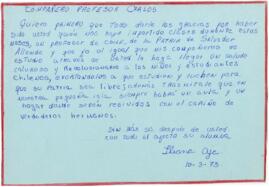 COMPAÑERO PROFESOR CARLOS
Quiero primero que todo darle las gracias por haber
sido usted quien nos haya impartido clases durante estos
meses, un profesor de Chile, de la Patria de Salvador
Allende y que yo al igual que mis compañeros de
estudio a través de usted le haga llegar un saludo
caluroso y Revolucionario a los niños y estudiantes
chilenos, exhortándolos a que estudien y luchen para
que su Patria sea libre, además trasmítale que en
nuestra pequeña isla siempre habrá un aula y un
hogar donde serán recibidos con el cariño de
verdaderos hermanos.
Sin más se despide de usted
con todo el afecto su alumna
10-3-75.